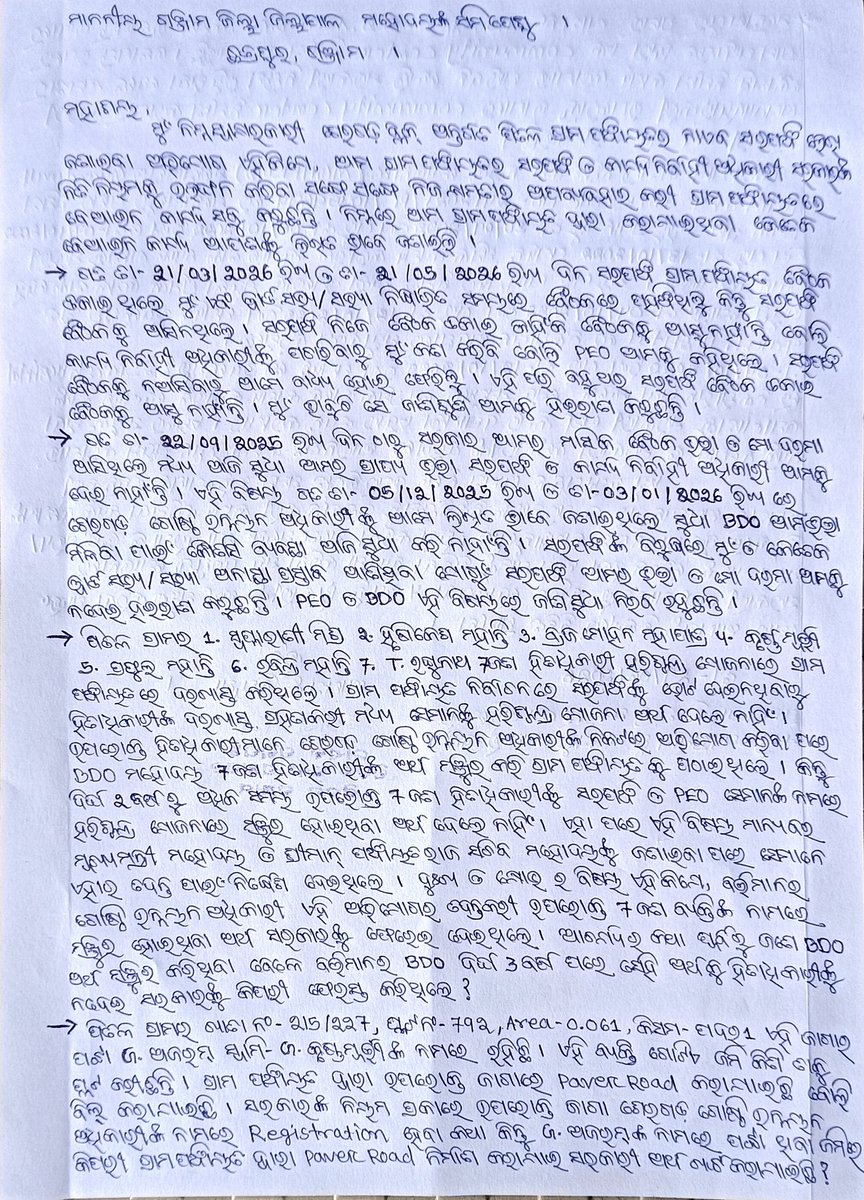 ମାନନୀୟ ଗଞ୍ଜାମ ଜିଲ୍ଲା ଜିଲ୍ଲାପାଳ ମହୋଦୟଙ୍କ ସମୀପେଷୁ ।
ଛତ୍ରପୁର, ଗଞ୍ଜାମ ।
ମହାଶୟ,
ମୁଁ ନିମ୍ନସ୍ୱାକ୍ଷରକାରୀ ଶେରଗଡ଼ ବ୍ଲକ୍ ଅନ୍ତର୍ଗତ ପିତଳ ଗ୍ରାମ ପଞ୍ଚାୟତର ନାଏବ ସରପଞ୍ଚ ହେଇ
ଜଣାଇବା ଅଭିଯୋଗ ଏହିକିମେ, ଆମ ଗ୍ରାମ ପଞ୍ଚାୟତର ସରପଞ୍ଚ ଓ କାର୍ଯ୍ୟ ନିର୍ବାହୀ ଅଧିକାରୀ ସରକାରଙ୍କ
ନିତି ନିୟମକୁ ଉଲଂଘନ କରିବା ସଙ୍ଗେ ସଙ୍ଗେ ନିଜ କ୍ଷମତାର ଅପବ୍ୟବହାର କରି ଗ୍ରାମ ପଞ୍ଚାୟତରେ
ବେଆଇନ କାର୍ଯ୍ୟ ସବୁ କରୁଛନ୍ତି । ନିମ୍ନରେ ଆମ ଗ୍ରାମ ପଞ୍ଚାୟତ ଦ୍ୱାରା କରାଯାଇଥିବା କେତେକ
ବେଆଇନ କାର୍ଯ୍ୟ ଆପଣଙ୍କୁ ଲିଖିତ ଭାବେ ଜଣାଉଛି ।
→ ଗତ ତା- 21/03/2026 ରିଖ ଓ ତା- 21/05/2026 ରିଖ ଦିନ ସରପଞ୍ଚ ଗ୍ରାମ ପଞ୍ଚାୟତ ବୈଠକ
ଡକାଇ ଥିଲେ ମୁଁ ଏବଂ ୱାର୍ଡ ସଭ୍ୟ/ସଭ୍ୟା ନିର୍ଦ୍ଧାରିତ ସମୟରେ ବୈଠକରେ ପହଞ୍ଚିଥିଲୁ କିନ୍ତୁ ସରପଞ୍ଚ
ବୈଠକକୁ ଆସିନଥିଲେ । ସରପଞ୍ଚ ନିଜେ ବୈଠକ ଡକାଇ କାହିଁକି ବୈଠକକୁ ଆସୁନାହାଁନ୍ତି ବୋଲି
କାର୍ଯ୍ୟ ନିର୍ବାହୀ ଅଧିକାରୀଙ୍କୁ ପଚାରିବାରୁ ମୁଁ କଣ କରିବି ବୋଲି PEO ଆମକୁ କହିଥିଲେ । ସରପଞ୍ଚ
ବୈଠକକୁ ନଆସିବାରୁ ଆମେ ବାଧ୍ୟ ହୋଇ ଫେରିଲୁ । ଏହି ପରି ବହୁ ଥର ସରପଞ୍ଚ ବୈଠକ ଡକାଇ
ବୈଠକକୁ ଆସୁ ନାହାଁନ୍ତି । ମୁଁ ଭାବୁଚି ସେ ଜାଣିଶୁଣି ଆମକୁ ହଇରାଣ କରୁଛନ୍ତି ।
→ ଗତ ତା- 22/09/2025 ରିଖ ଦିନ ଠାରୁ ସରକାର ଆମର ମାସିକ ବୈଠକ ଭତ୍ତା ଓ ମୋ ଦରମା
ଆସିଥିଲେ ମଧ୍ୟ ଆଜି ସୁଧା ଆମର ପ୍ରାପ୍ୟ ଭତ୍ତା ସରପଞ୍ଚ ଓ କାର୍ଯ୍ୟ ନିର୍ବାହୀ ଅଧିକାରୀ ଆମକୁ
ଦେଇ ନାହାଁନ୍ତି । ଏହି ବିଷୟ ଗତ ତା- 05/12/2025 ରିଖ ଓ ତା- 03/01/2026 ରିଖ ରେ
ଶେରଗଡ଼ ଗୋଷ୍ଠି ଉନ୍ନୟନ ଅଧିକାରୀଙ୍କୁ ଆମେ ଲିଖିତ ଭାବେ ଜଣାଇଥିଲେ ସୁଧା BDO ଆମ ଭତ୍ତା
ମିଳିବା ପାଇଁ କୌଣସି ବ୍ୟବସ୍ଥା ଆଜି ସୁଧା କରି ନାହାଁନ୍ତି । ସରପଞ୍ଚଙ୍କ ବିରୁଦ୍ଧରେ ମୁଁ ଓ କେତେକ
ୱାର୍ଡ ସଭ୍ୟ/ସଭ୍ୟା ଅନାସ୍ଥା ପ୍ରସ୍ତାବ ଆଣିଥିବା ଯୋଗୁଁ ସରପଞ୍ଚ ଆମର ଭତ୍ତା ଓ ମୋ ଦରମା ଆମକୁ
ନଦେଇ ହଇରାଣ କରୁଛନ୍ତି । PEO ଓ BDO ଏହି ବିଷୟରେ ଜାଣିସୁଧା ନିରବ ରହୁଛନ୍ତି ।
→ ପିତଳ ଗ୍ରାମର 1. ସୁଧାରାଣୀ ମିଶ୍ର 2. ହୃଷିକେଶ ମହାନ୍ତି 3. ବ୍ରଜ ମୋହନ ମହାପାତ୍ର 4. କୃଷ୍ଣମୂର୍ତ୍ତି
5. ପ୍ରଫୁଲ ମହାନ୍ତି 6. ରବିନ୍ଦ୍ର ମହାନ୍ତି 7. T. ରଘୁନାଥ 7 ଜଣ ହିତାଧିକାରୀ ହରିଶ୍ଚନ୍ଦ୍ର ଯୋଜନାରେ ଗ୍ରାମ
ପଞ୍ଚାୟତରେ ଦରଖାସ୍ତ କରିଥିଲେ । ଗ୍ରାମ ପଞ୍ଚାୟତ ନିର୍ବାଚନରେ ସରପଞ୍ଚଙ୍କୁ ଭୋଟ ଦେଇନଥିବାରୁ
ହିତାଧିକାରୀଙ୍କ ଦରଖାସ୍ତ ଗ୍ରହଣକରି ମଧ୍ୟ ସେମାନଙ୍କୁ ହରିଶ୍ଚନ୍ଦ୍ର ଯୋଜନା ଅର୍ଥ ଦେଲେ ନାହିଁ ।
ଉପରୋକ୍ତ ହିତାଧିକାରୀମାନେ ଶେରଗଡ଼ ଗୋଷ୍ଠି ଉନ୍ନୟନ ଅଧିକାରୀଙ୍କ ନିକଟରେ ଅଭିଯୋଗ କରିବା ପରେ
BDO ମହୋଦୟ 7 ଜଣ ହିତାଧିକାରୀଙ୍କୁ ଅର୍ଥ ମଞ୍ଜୁର କରି ଗ୍ରାମ ପଞ୍ଚାୟତକୁ ପଠାଇଥିଲେ । କିନ୍ତୁ
ଦିର୍ଘ 2 ବର୍ଷରୁ ଅଧିକ ସମୟ ଉପରୋକ୍ତ 7 ଜଣ ହିତାଧିକାରୀଙ୍କୁ ସରପଞ୍ଚ ଓ PEO ସେମାନଙ୍କ ନାମରେ
ହରିଶ୍ଚନ୍ଦ୍ର ଯୋଜନାରେ ମଞ୍ଜୁର ହୋଇଥିବା ଅର୍ଥ ଦେଲେ ନାହିଁ । ଏହା ପରେ ଏହି ବିଷୟ ମାନ୍ୟବର
ମୁଖ୍ୟମନ୍ତ୍ରୀ ମହୋଦୟ ଓ ଶ୍ରୀମାନ୍ ପଞ୍ଚାୟତରାଜ ସଚିବ ମହୋଦୟଙ୍କୁ ଜଣାଇବା ପରେ ସେମାନେ
ଏହାର ତଦନ୍ତ ପାଇଁ ନିର୍ଦ୍ଦେଶ ଦେଇଥିଲେ । ଦୁଃଖ ଓ କ୍ଷୋଭ ର ବିଷୟ ଏହିକିମେ, ବର୍ତ୍ତମାନର
ଗୋଷ୍ଠି ଉନ୍ନୟନ ଅଧିକାରୀ ଏହି ଅଭିଯୋଗର ତଦନ୍ତକରି ଉପରୋକ୍ତ 7 ଜଣ ବ୍ୟକ୍ତିଙ୍କ ନାମରେ
ମଞ୍ଜୁର ହୋଇଥିବା ଅର୍ଥ ସରକାରଙ୍କୁ ଫେରେଇ ଦେଇଥିଲେ । ଆଶ୍ଚର୍ଯ୍ୟର କଥା ପୂର୍ବରୁ ଜଣେ BDO
ଅର୍ଥ ମଞ୍ଜୁର କରିଥିବା ବେଳେ ବର୍ତ୍ତମାନର BDO ଦିର୍ଘ 3 ବର୍ଷ ପରେ ସେହି ଅର୍ଥକୁ ହିତାଧିକାରୀଙ୍କୁ
ନଦେଇ ସରକାରଙ୍କୁ କିପରୀ ଫେରସ୍ତ କରିଥିଲେ ?
→ ପିତଳ ଗ୍ରାମର ଖାତା ନଂ- 215/227, ପ୍ଲଟ ନଂ- 792, Area-0.061, କିସମ- ପଦର 1 ଏହି ଜାଗାର
ପଟ୍ଟା ଓ. ଅଜରମ୍ ସ୍ୱାମୀ- ଓ. କୃଷ୍ଣମୂର୍ତ୍ତୀଙ୍କ ନାମରେ ରହିଛି । ଏହି ବ୍ୟକ୍ତି ଗୋଟିଏ ଜମି କିଣି ତାକୁ
ପ୍ଲଟ କରିଛନ୍ତି । ଗ୍ରାମ ପଞ୍ଚାୟତ ଦ୍ୱାରା ଉପରୋକ୍ତ ଜାଗାରେ Paver Road କରାଯାଇଛି ବୋଲି
ବିଲ୍ କରାଯାଇଛି । ସରକାରଙ୍କ ନିୟମ ପ୍ରକାରେ ଉପରୋକ୍ତ ଜାଗା ଶେରଗଡ଼ ଗୋଷ୍ଠି ଉନ୍ନୟନ
ଅଧିକାରୀଙ୍କ ନାମରେ Registration ହେବା କଥା କିନ୍ତୁ ଓ. ଅଜରମ୍‌ଙ୍କ ନାମରେ ପଟ୍ଟା ଥିବା ଜମିରେ
କିପରୀ ଗ୍ରାମ ପଞ୍ଚାୟତ ଦ୍ୱାରା Paver Road ନିର୍ମାଣ କରାଯାଇ ସରକାରୀ ଅର୍ଥ ଖର୍ଚ୍ଚ କରାଯାଇଛି ?